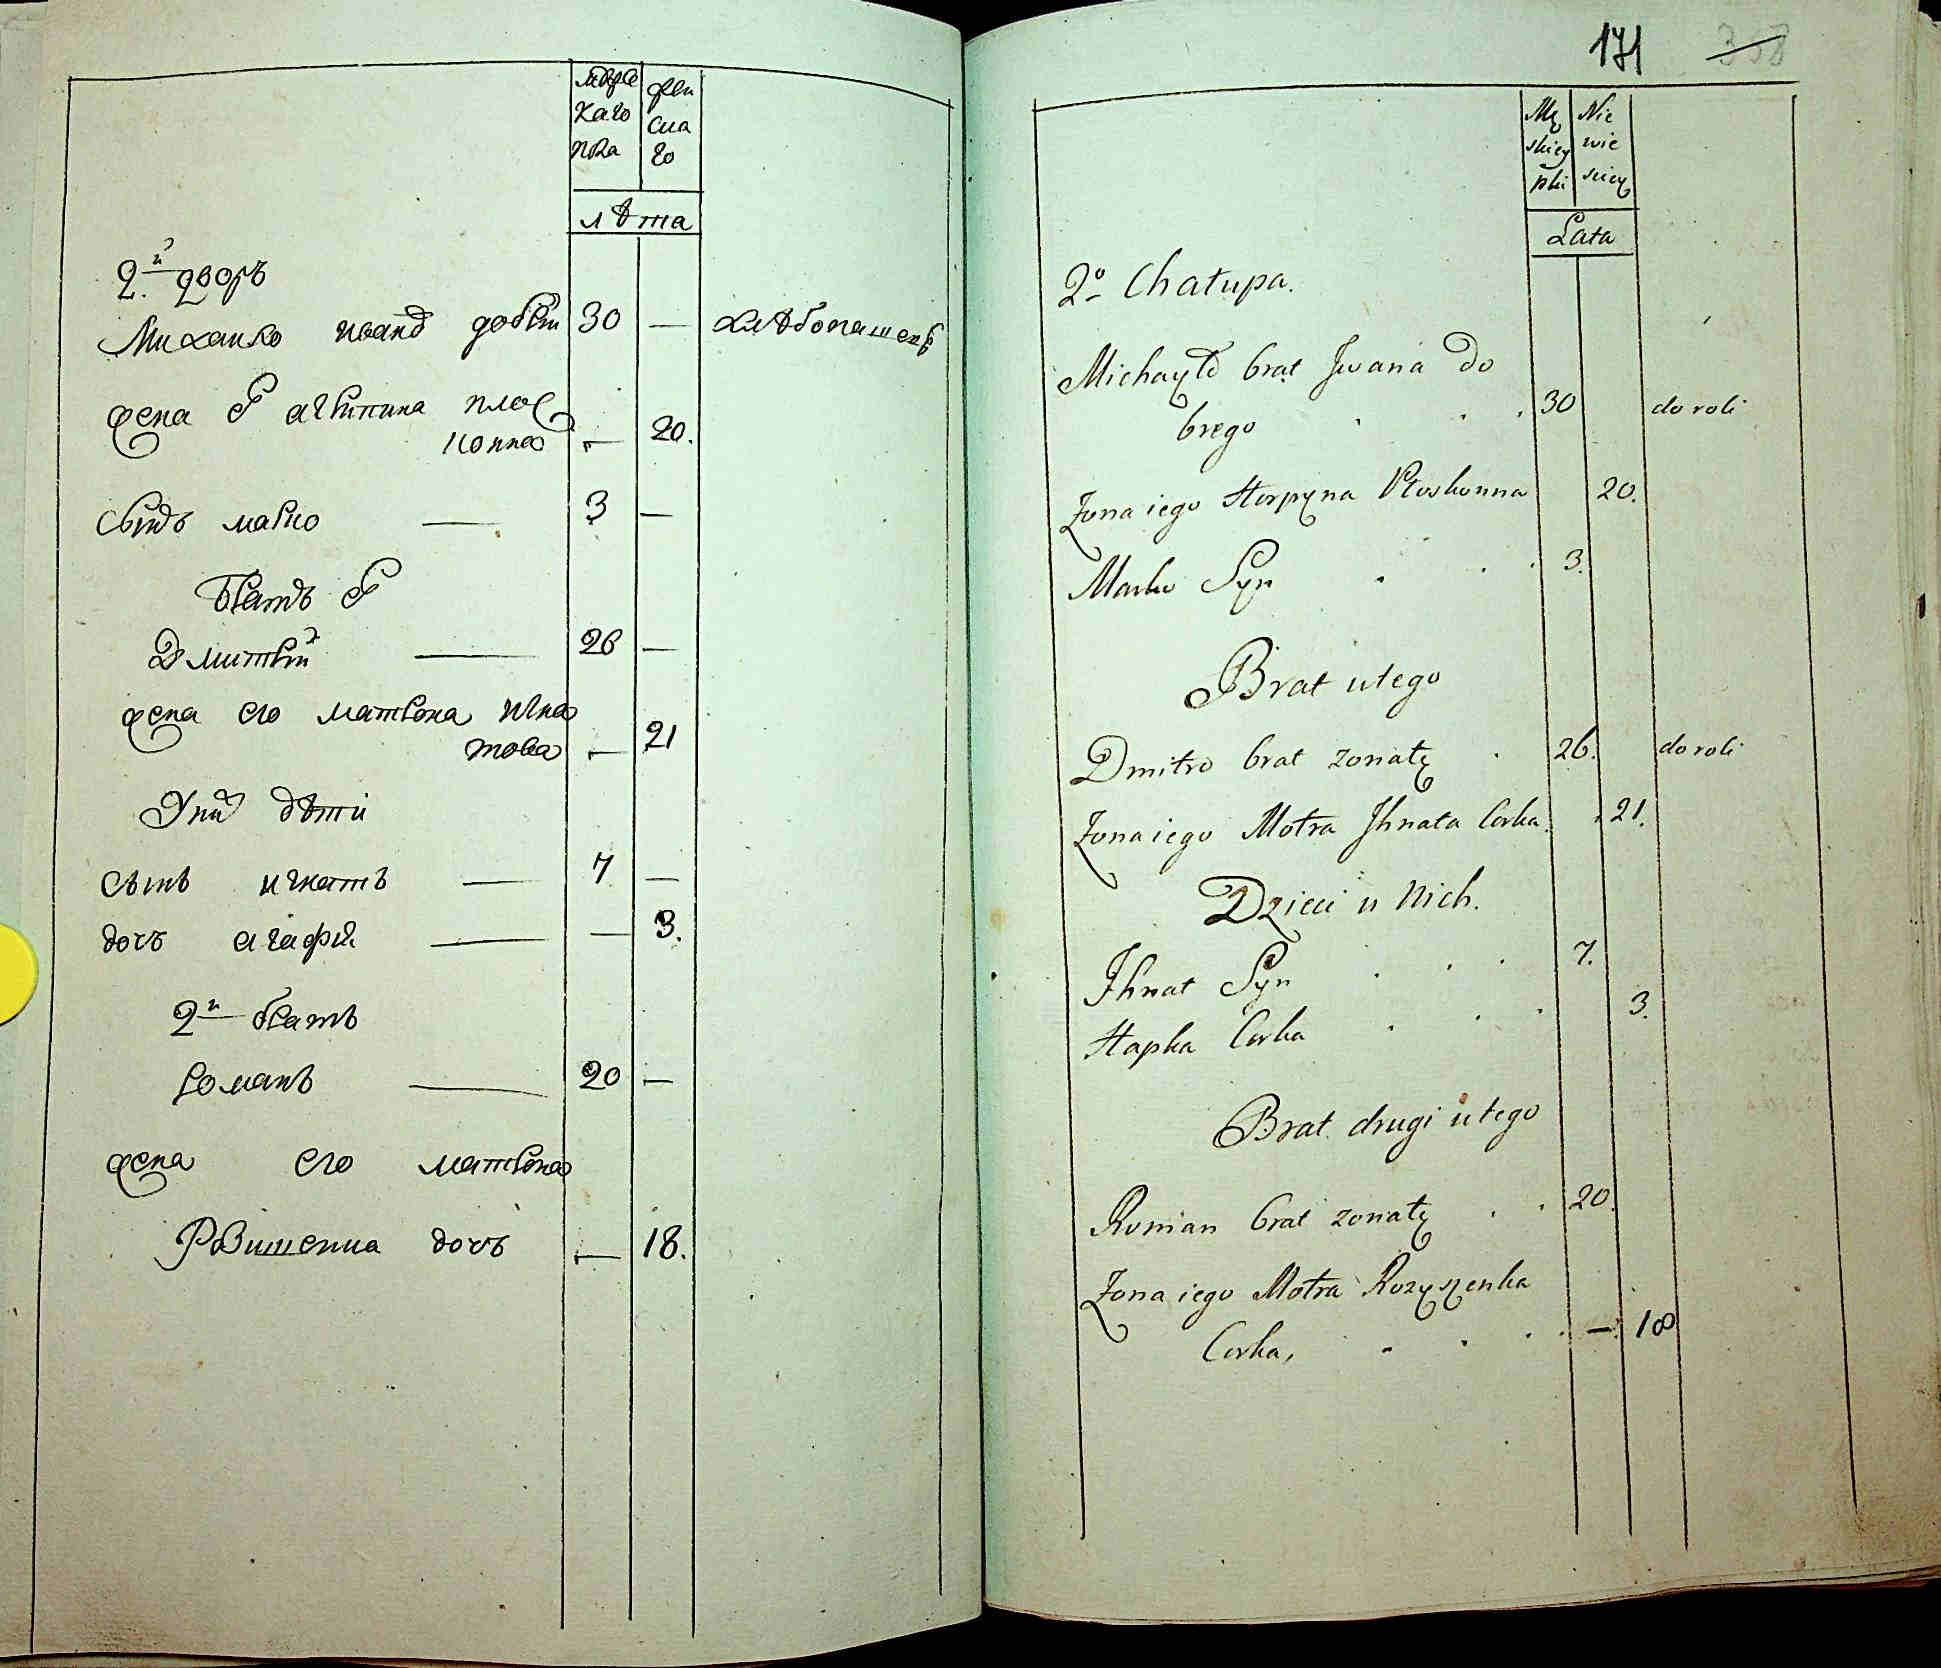 Мужескаго пола
Женскаго
лѣта
2.й дворъ
Михайло иванъ добрій 30 — хлѣбопашецъ
жена его агрипина плос
конна — 20.
сынъ марко — 3 —
Братъ его
Дмитрій — 26 —
жена его матрона игна
това — 21
У них дѣти
сынъ игнатъ — 7 —
дочь агафия — — 3.
2й братъ
романъ — 20 —
жена его матрона
дочь — 18.
171
358
Męskiey płci
Niewiesciey
Lata
2o Chałupa.
Michayło brat Jwana Do
brego . . . 30 do roli
Zona iego Horpyna Płoskonna 20.
Marko Syn . . . 3.
Brat u tego
Dmitro brat zonaty . 26. do roli
Zona iego Motra Jhnata Corka. 21.
Dzieci u Nich.
Jhnat Syn . . . 7.
Hapka Corka . . . 3.
Brat drugi u tego
Roman brat zonaty . . 20.
Zona iego Motra Rozyszenka
Corka, . . . . — 18